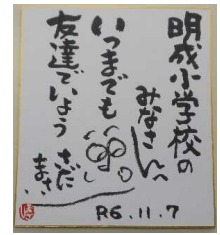 明成小学校の
みなさんへ
いつまでも
友達でいよう
さだ
まさし
R6.11.7